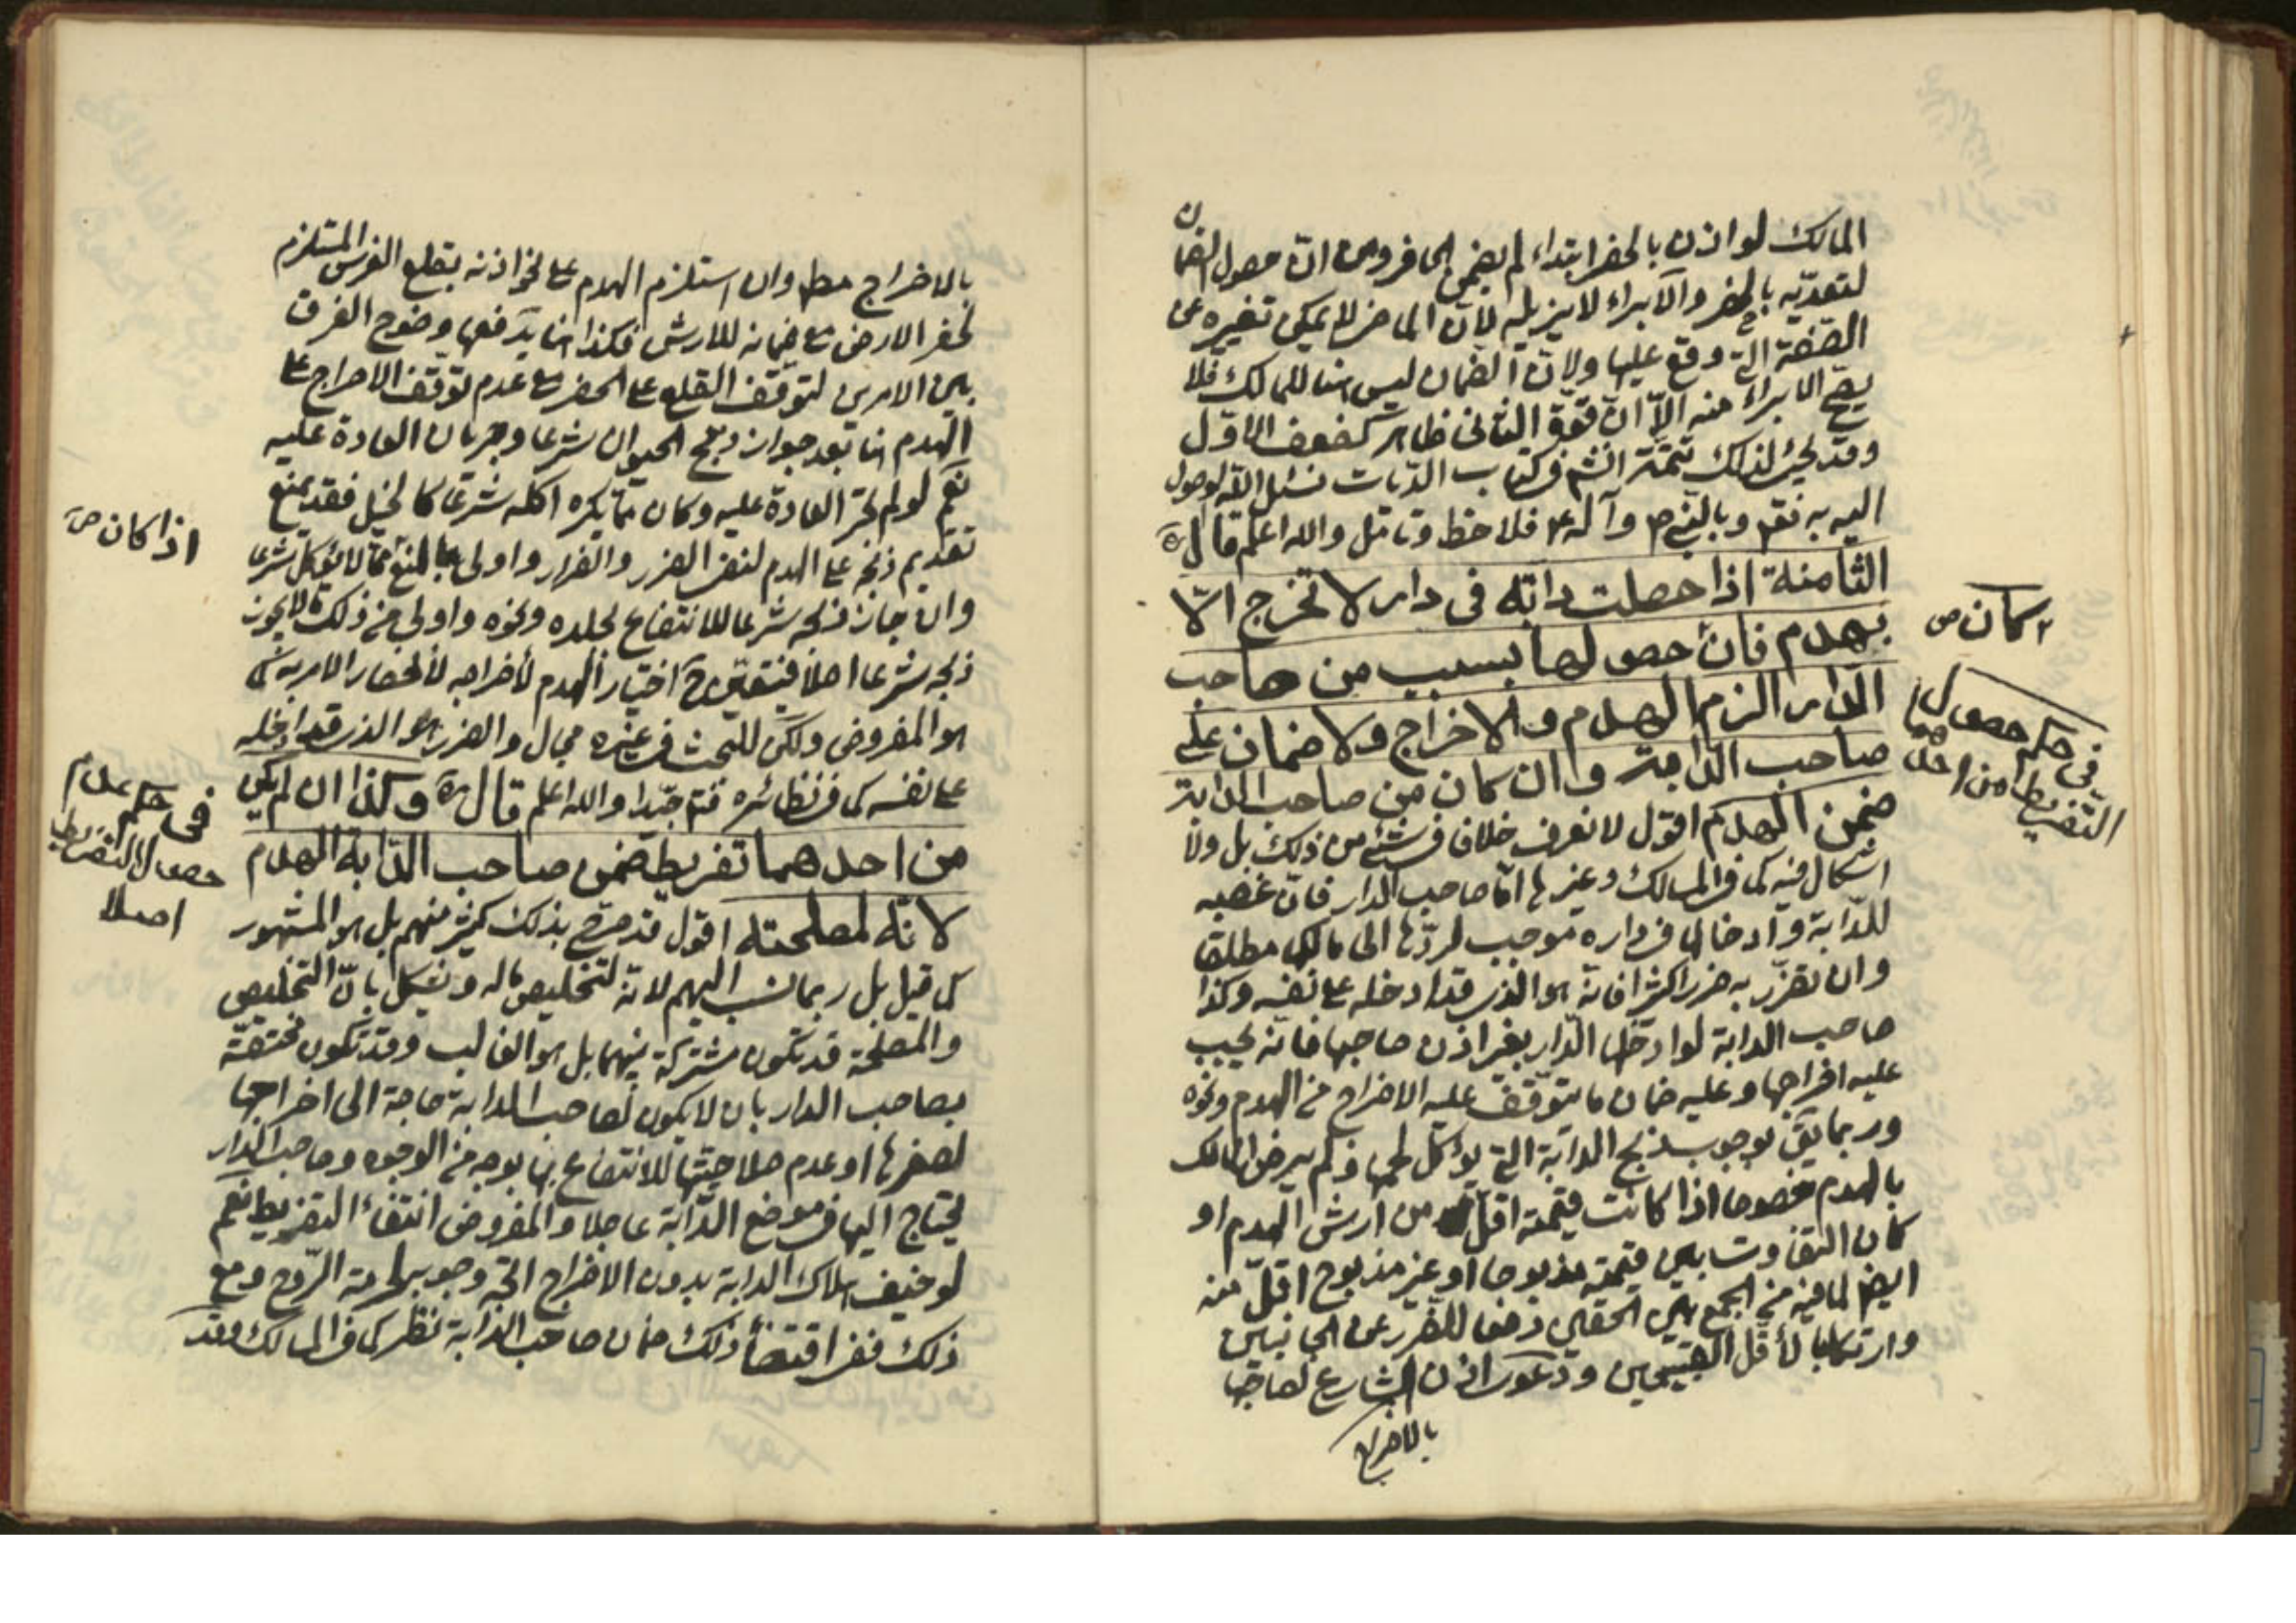 المالك لو اذن بالحفر ابتداء لم يضمن الحافر ومن ان حصول الضمان
لتعديه بالحفر والابراء لا يزيله لان الماضي لا يمكن تغييره عن
الصفة التي وقع عليها ولان الضمان ليس هنا للمالك فلا
يصح الابراء منه الا ان قوة الثاني ظاهر كضعف الاول
وقد يجئ لذلك تتمة انشم في كتاب الديات نسئل الله الوصول
اليه به نقم وبالنبي ص وآله ع فلاحظ وتامل والله اعلم قال ره
الثامنة اذا حصلت دابة في دار لا تخرج الا
بهدم فان حصولها بسبب من صاحب
الدار الزم الهدم والاخراج ولا ضمان على
صاحب الدابة وان كان من صاحب الدابة
ضمن الهدم اقول لا نعرف خلافا في شئ من ذلك بل ولا
اشكال فيه كما في المسالك وغيرها اما صاحب الدار فان غصبه
للدابة وادخالها في داره موجب لردها الى مالكها مطلقا
وان تضرر به ضررا كثيرا فانه هو الذي قد ادخله على نفسه وكذا
صاحب الدابة لو ادخلها الدار بغير اذن صاحبها فانه يجب
عليه اخراجها وعليه ضمان ما يتوقف عليه الاخراج من الهدم ونحوه
وربما يق بوجوب ذبح الدابة التي يؤكل لحمها ولم يرض المالك
بالهدم خصوصا اذا كانت قيمته اقل من ارش الهدم او
كان التفاوت بين قيمته مذبوحا او غير مذبوح اقل منه
ايضا لما فيه من الجمع بين الحقين دفعا للضرر عن الجانبين
وارتكابا لأقل القبيحين ودعوى اذن الشارع لصاحبها
بالاخراج
اكان ص
في حكم حصول
التفريط من احدهما
بالاخراج مط وان استلزم الهدم على نحو اذنه بقلع الغرس المستلزم
لحفر الارض مع ضمانه للارش فكذا هنا يدفعها وضوح الفرق
بين الامرين لتوقف القلع على الحفر مع عدم توقف الاخراج على
الهدم هنا بعد جواز ذبح الحيوان شرعا وجريان العادة عليه
نعم لو لم تجر العادة عليه وكان مما يكره اكله شرعا كالخيل فقد يمنع
تقديم ذبحه على الهدم لنفي الضرر والضرار واولى بالمنع مما لا يؤكل شرعا
وان جاز ذبحه شرعا للانتفاع بجلده ونحوه واولى من ذلك ما لا يجوز
ذبحه شرعا اصلا فيتعين ح اختيار الهدم لأخراجه لأنحصار الامر به كما
هو المفروض ولكن للبحث في غيره مجال والضرر هو الذي قد ادخله
على نفسه كما في نظائره فتم جيدا والله اعلم قال ره وكذا ان لم يكن
من احدهما تفريط ضمن صاحب الدابة الهدم
لانه لمصلحته اقول قد صرح بذلك كثير منهم بل هو المشهور
كما قيل بل ربما نسب اليهم لانه لتخليص ماله ويشكل بان التخليص
والمصلحة قد تكون مشتركة بينهما بل هو الغالب وقد تكون مختصة
بصاحب الدار بان لا يكون لصاحب الدابة حاجة الى اخراجها
لصغرها او عدم صلاحيتها للانتفاع بها بوجه من الوجوه وصاحب الدار
يحتاج اليها في موضع الدابة عاجلا والمفروض انتفاء التفريط نعم
لو خيف هلاك الدابة بدون الاخراج اتجه وجوبه لحرمة الروح ومع
ذلك ففي اقتضاء ذلك ضمان صاحب الدابة نظر كما في المسالك وقد
اذا كان ص
في حكم عدم
حصول التفريط
اصلا